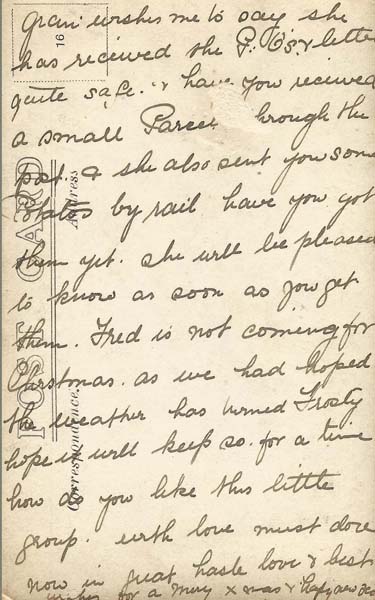 Gran wishes me to say she
has received the P. Os & letter
quite safe. & have you received
a small Parcel through the
post. & she also sent you some
tatos by rail have you got
them yet. she will be pleased
to know as soon as you get
them. Fred is not coming for
Christmas. as we had hoped
the weather has turned Frosty
hope it will keep so. for a time
how do you like this little
group. with love must close
now in great haste love & best
wishes for a Merry Xmas & Happy New Year
16
POST CARD
Address
Correspondence.